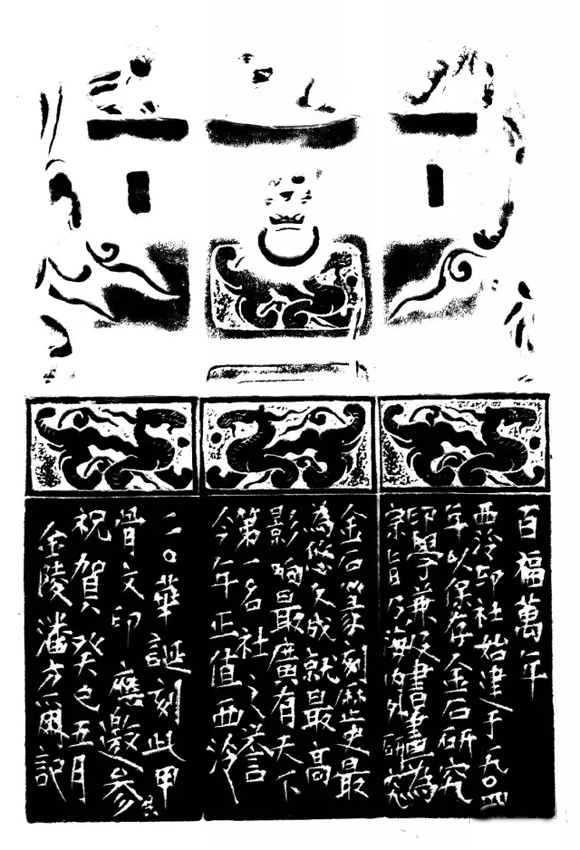 百福萬年
西泠印社始建于一九〇四
年以保存金石研究
印學兼及書畫為
宗旨乃海内外研究
金石篆刻歷史最
為悠久成就最高
影响最廣有天下
第一名社之譽
今年正值西泠
一一〇華誕刻此甲
骨文印應邀参
祝賀癸巳五月
金陵潘方爾記